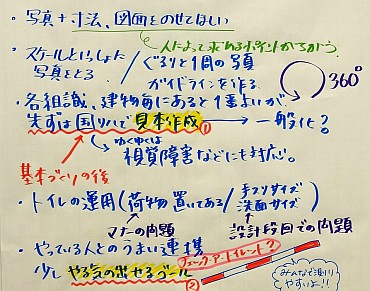 ・写真＋寸法、図面をのせてほしい
人によって求めるポイントがちがう
・スケールといっしょに写真をとる
ぐるりと1周の写真
ガイドラインを作る
360°
・各組識、建物毎にあると1番よいが、
先ずは国レベルで見本作成 → 一般化？
①
ゆくゆくは視覚障害などにも対応。
基本づくりの後
・トイレの運用（荷物置いてある／手スリサイズ 洗面サイズ）
マナーの問題
設計段階での問題
・やっている人とのうまい連携
チェック・ア・トイレット？
少しやる気の出せるゴール
②
みんなで測りやすいよ!!